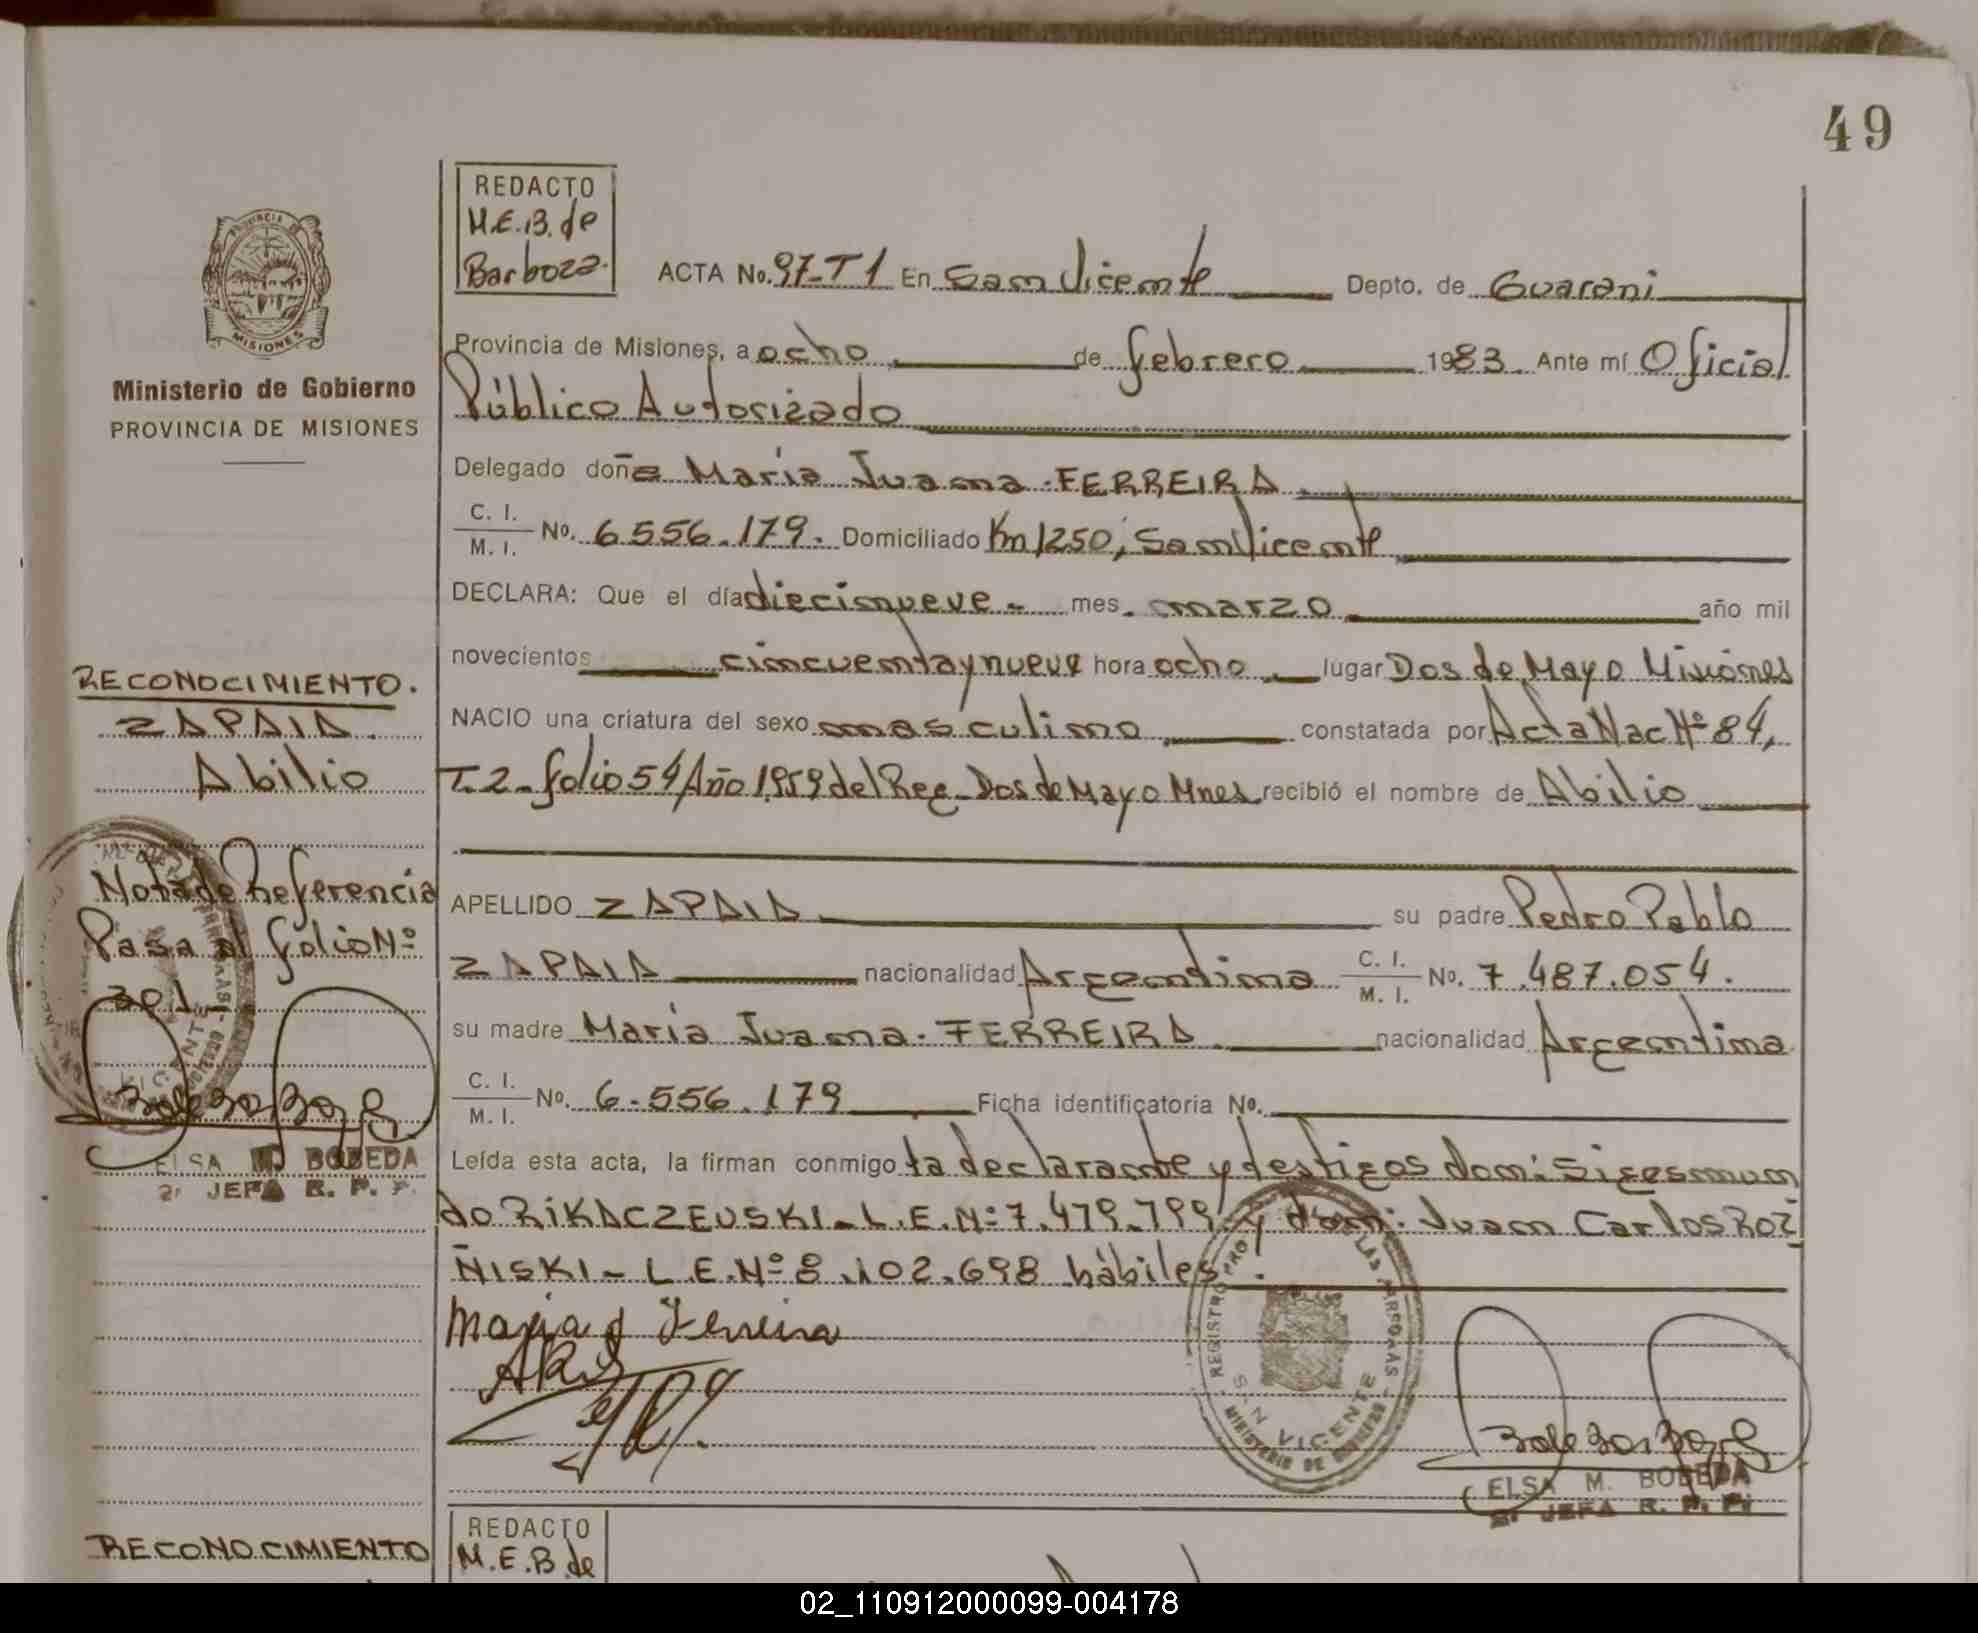 49
REDACTO
M.E.B. de
Barboza.
ACTA No. 97-T1 En San Vicente Depto. de Guarani
Provincia de Misiones, a ocho de febrero 1983. Ante mí Oficial
Público Autorizado
Delegado doña Maria Juana FERREIRA
C. I.
M. I. No. 6556.179. Domiciliado Km 1250, San Vicente
DECLARA: Que el día diecinueve mes marzo año mil
novecientos cincuenta y nueve hora ocho lugar Dos de Mayo Misiones
NACIO una criatura del sexo masculino constatada por Acta Nac Nº 84,
T. 2 - folio 54 Año 1959 del Reg. Dos de Mayo Mnes recibió el nombre de Abilio
APELLIDO ZAPAIA su padre Pedro Pablo
ZAPAIA nacionalidad Argentina C. I. M. I. No. 7.487.054.
su madre Maria Juana FERREIRA nacionalidad Argentina
C. I. M. I. No. 6.556.179 Ficha identificatoria No.
Leída esta acta, la firman conmigo la declarante y testigos don: Sigesmun
do RIKACZEUSKI - L.E. Nº 7.479.799 y don: Juan Carlos ROZ
ÑISKI - L.E. Nº 8.102.698 hábiles.
Maria J Ferreira
REGISTRO PRO LAS PERSONAS
SAN VICENTE
MINISTERIO DE GOBIERNO
ELSA M. BOBEDA
2ª JEFA R. P. P.
PROVINCIA DE
MISIONES
Ministerio de Gobierno
PROVINCIA DE MISIONES
RECONOCIMIENTO.
ZAPAIA
Abilio
Nota de Referencia
Pasa al folio Nº
301
ELSA M. BOBEDA
2ª JEFA R. P. P.
RECONOCIMIENTO
REDACTO
M.E.B de
02_110912000099-004178